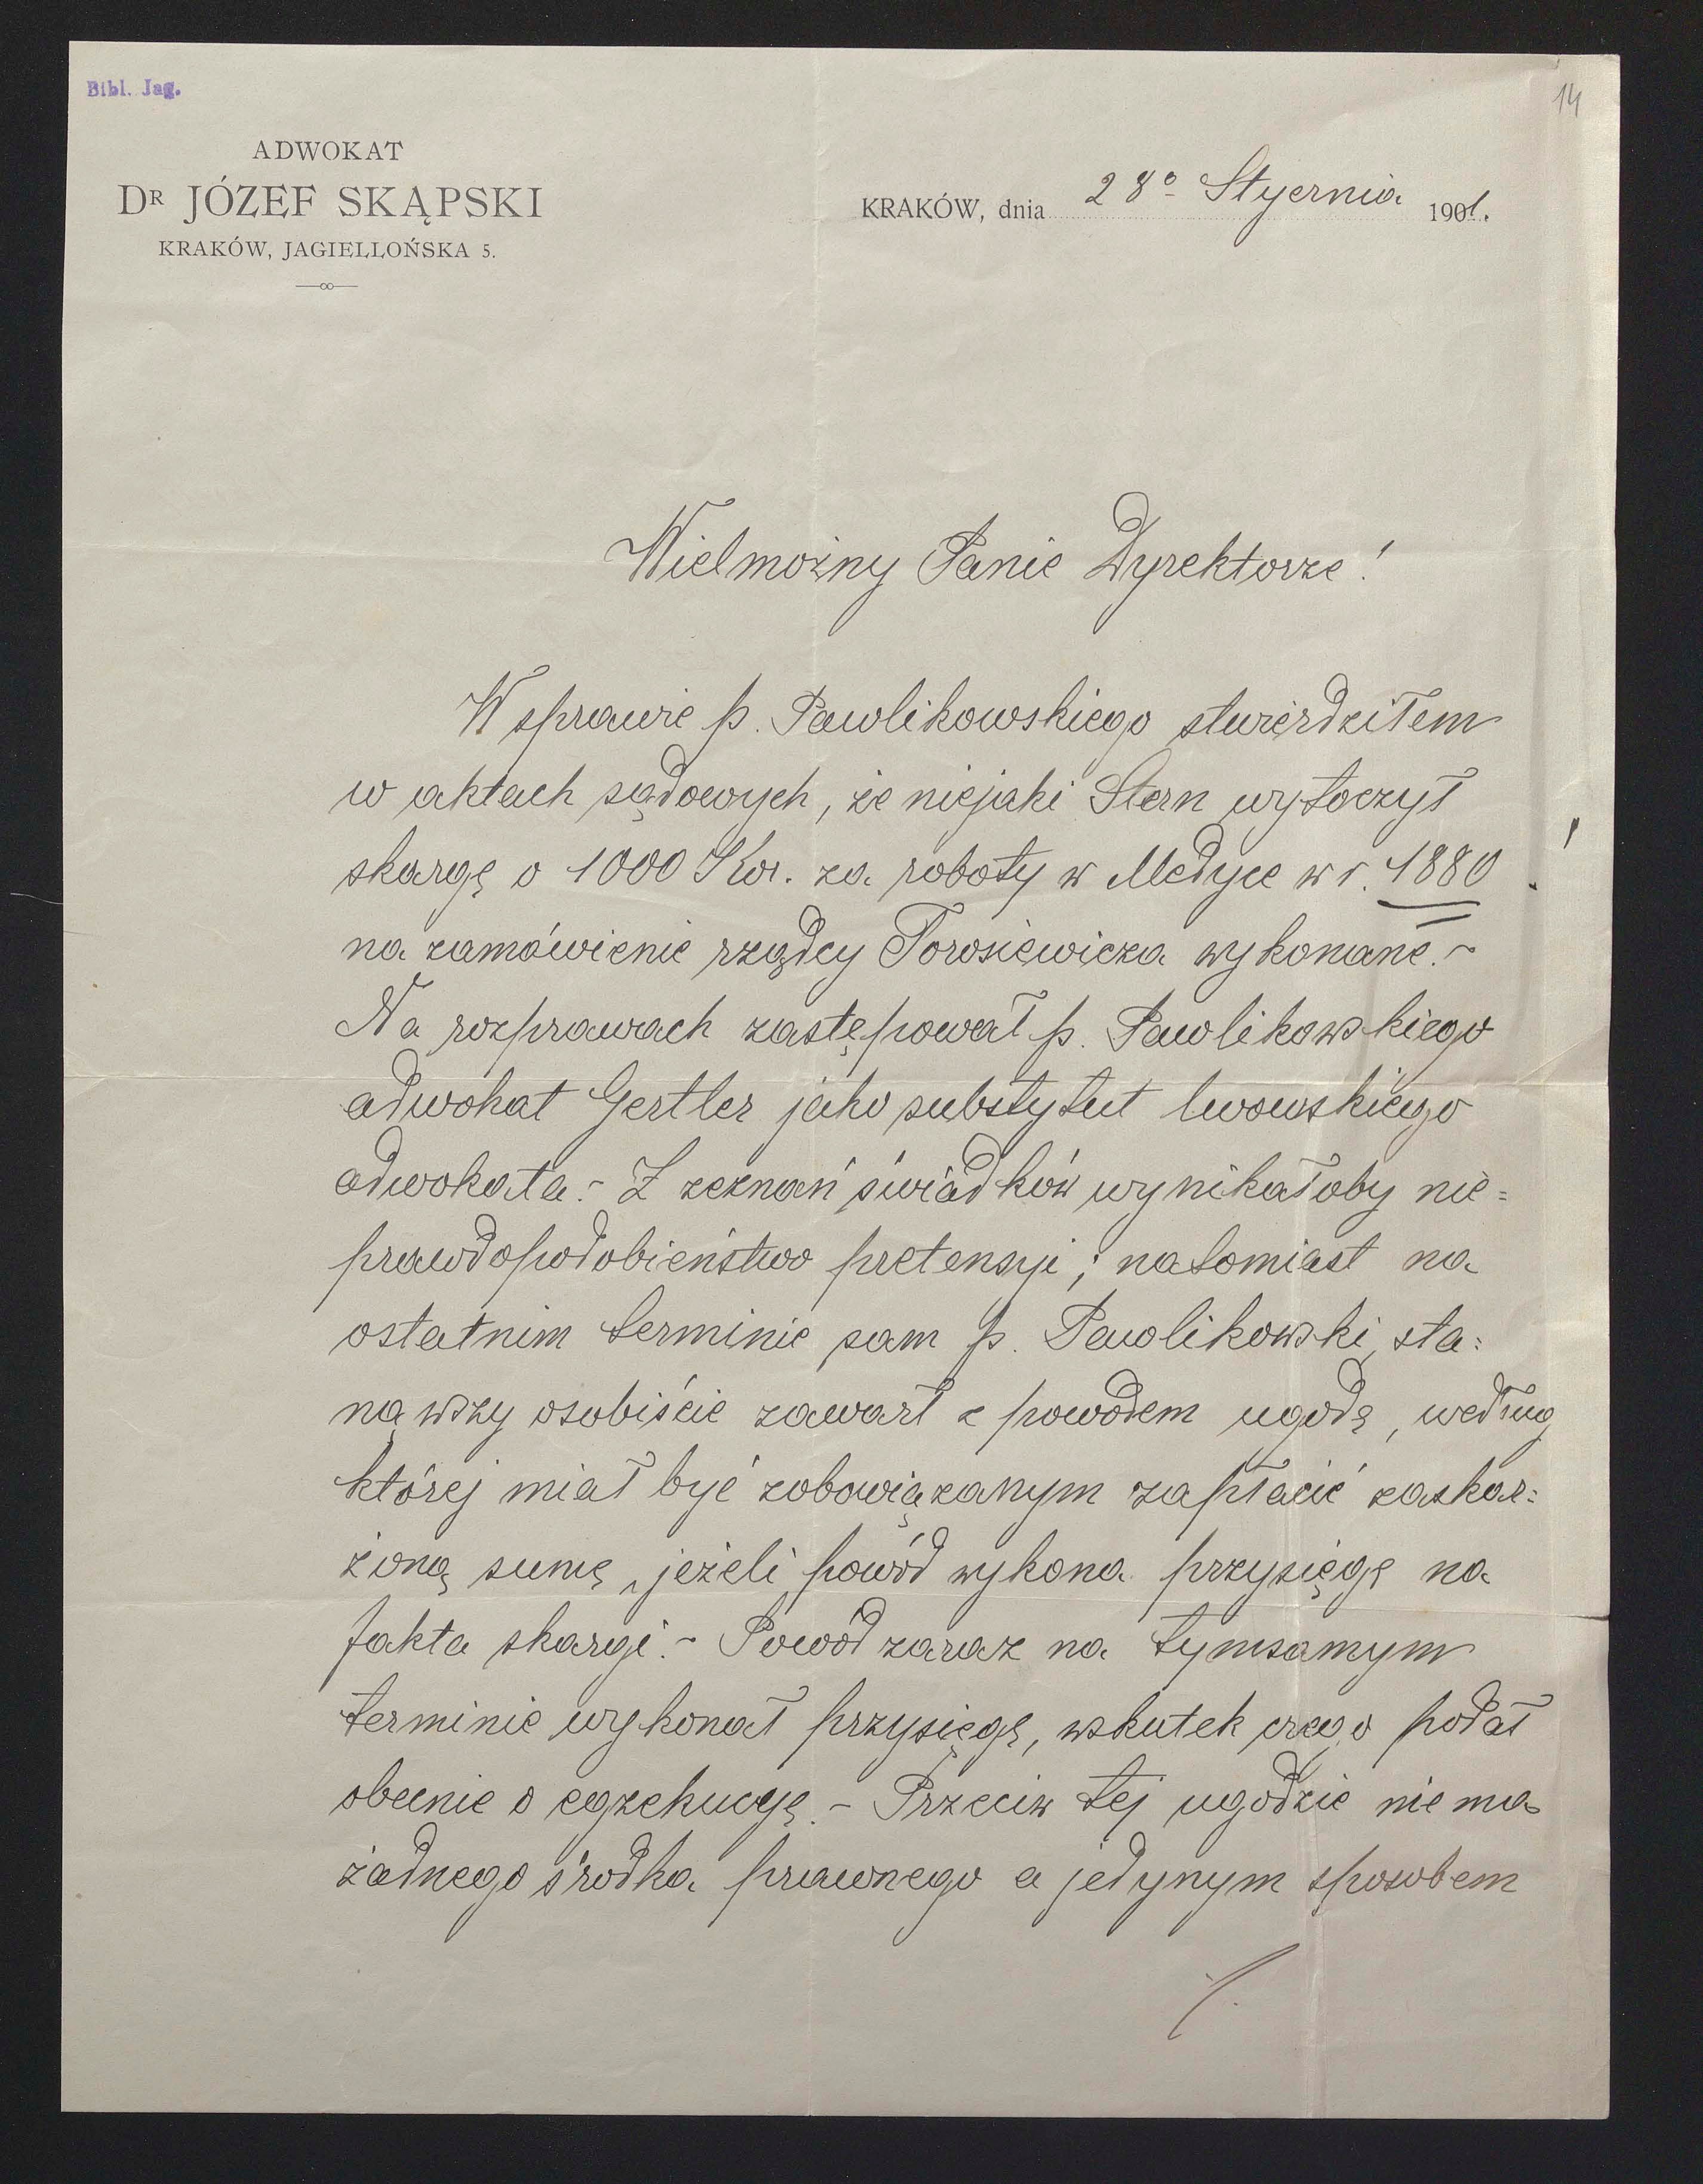 Bibl. Jag.
14
ADWOKAT
DR JÓZEF SKĄPSKI
KRAKÓW, JAGIELLOŃSKA 5.
KRAKÓW, dnia 28º Stycznia 1901.
Wielmożny Panie Dyrektorze!
W sprawie p. Pawlikowskiego stwierdziłem
w aktach sądowych, że niejaki Stern wytoczył
skargę o 1000 Kor. za roboty w Medyce w r. 1880
na zamówienie rządcy Torosiewicza wykonane.-
Na rozprawach zastępował p. Pawlikowskiego
adwokat Gertler jako substytut lwowskiego
adwokata.- Z zeznań świadków wynikałoby nie=
prawdopodobieństwo pretensyi; natomiast na
ostatnim terminie sam p. Pawlikowski, sta=
nąwszy osobiście zawarł z powodem ugodę, według
której miał być zobowiązanym zapłacić zaskar=
żoną sumę, jeżeli powód wykona przysięgę na
fakta skargi.- Powód zaraz na tymsamym
terminie wykonał przysięgę, wskutek czego podał
obecnie o egzekucyę.- Przeciw tej ugodzie nie ma
żadnego środka prawnego a jedynym sposobem
./.